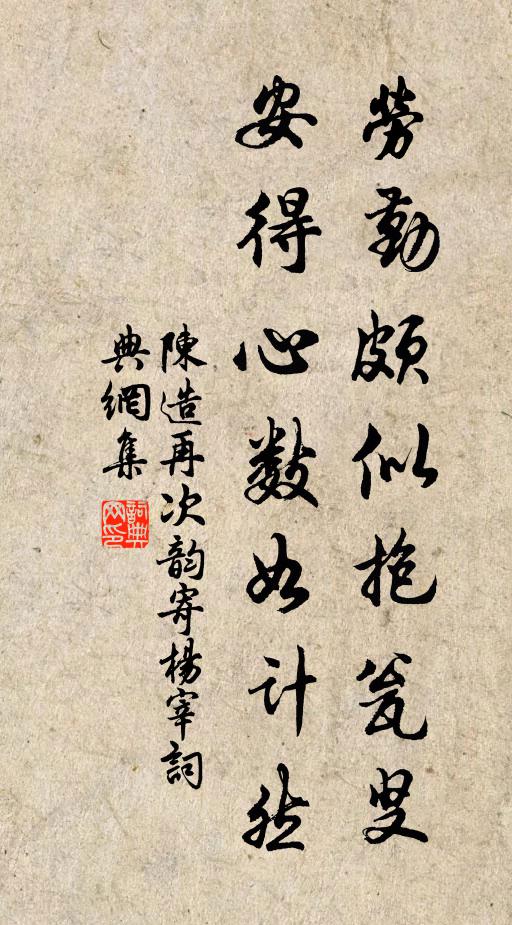 勞勤頗似抱瓮叟
安得心數如計然
陳造再次韵寄楊宰詞
典網集
詞典網印